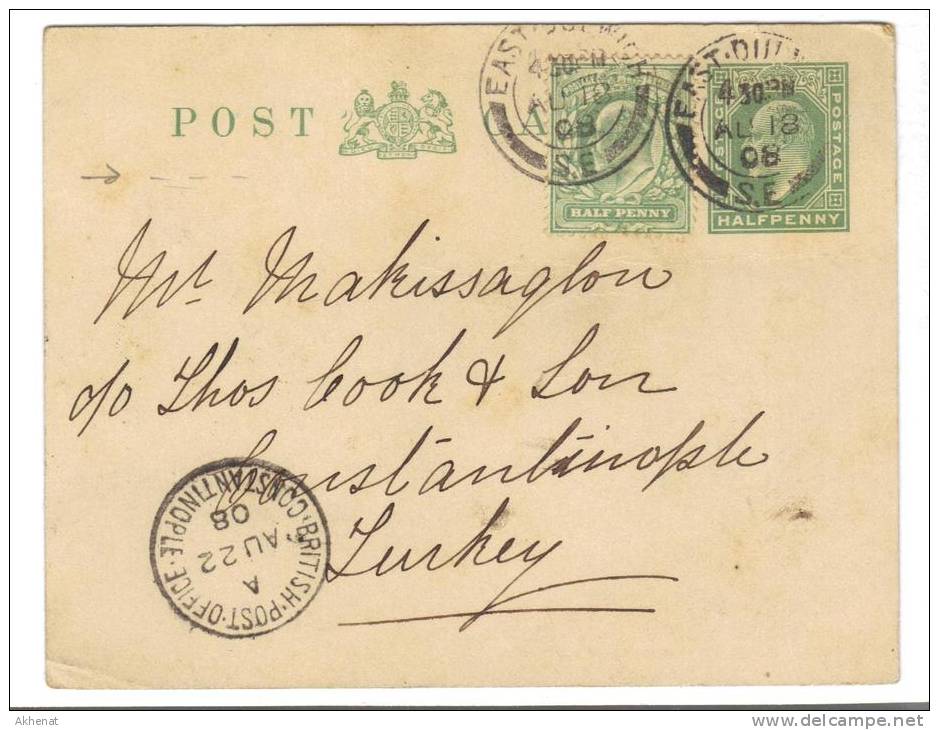 POST CA
EAST·DULWICH
4.30PM
AU 18
08
S.E
EAST·DUL
4.30PM
AU 18
08
S.E
HALF PENNY
POSTAGE
HALFPENNY
Mr. Makissaglon
c/o Thos Cook & Son
Constantinople
Turkey
BRITISH·POST·OFFICE·CONSTANTINOPLE·
A
AU 22
08
Akhenat
delcampe.net